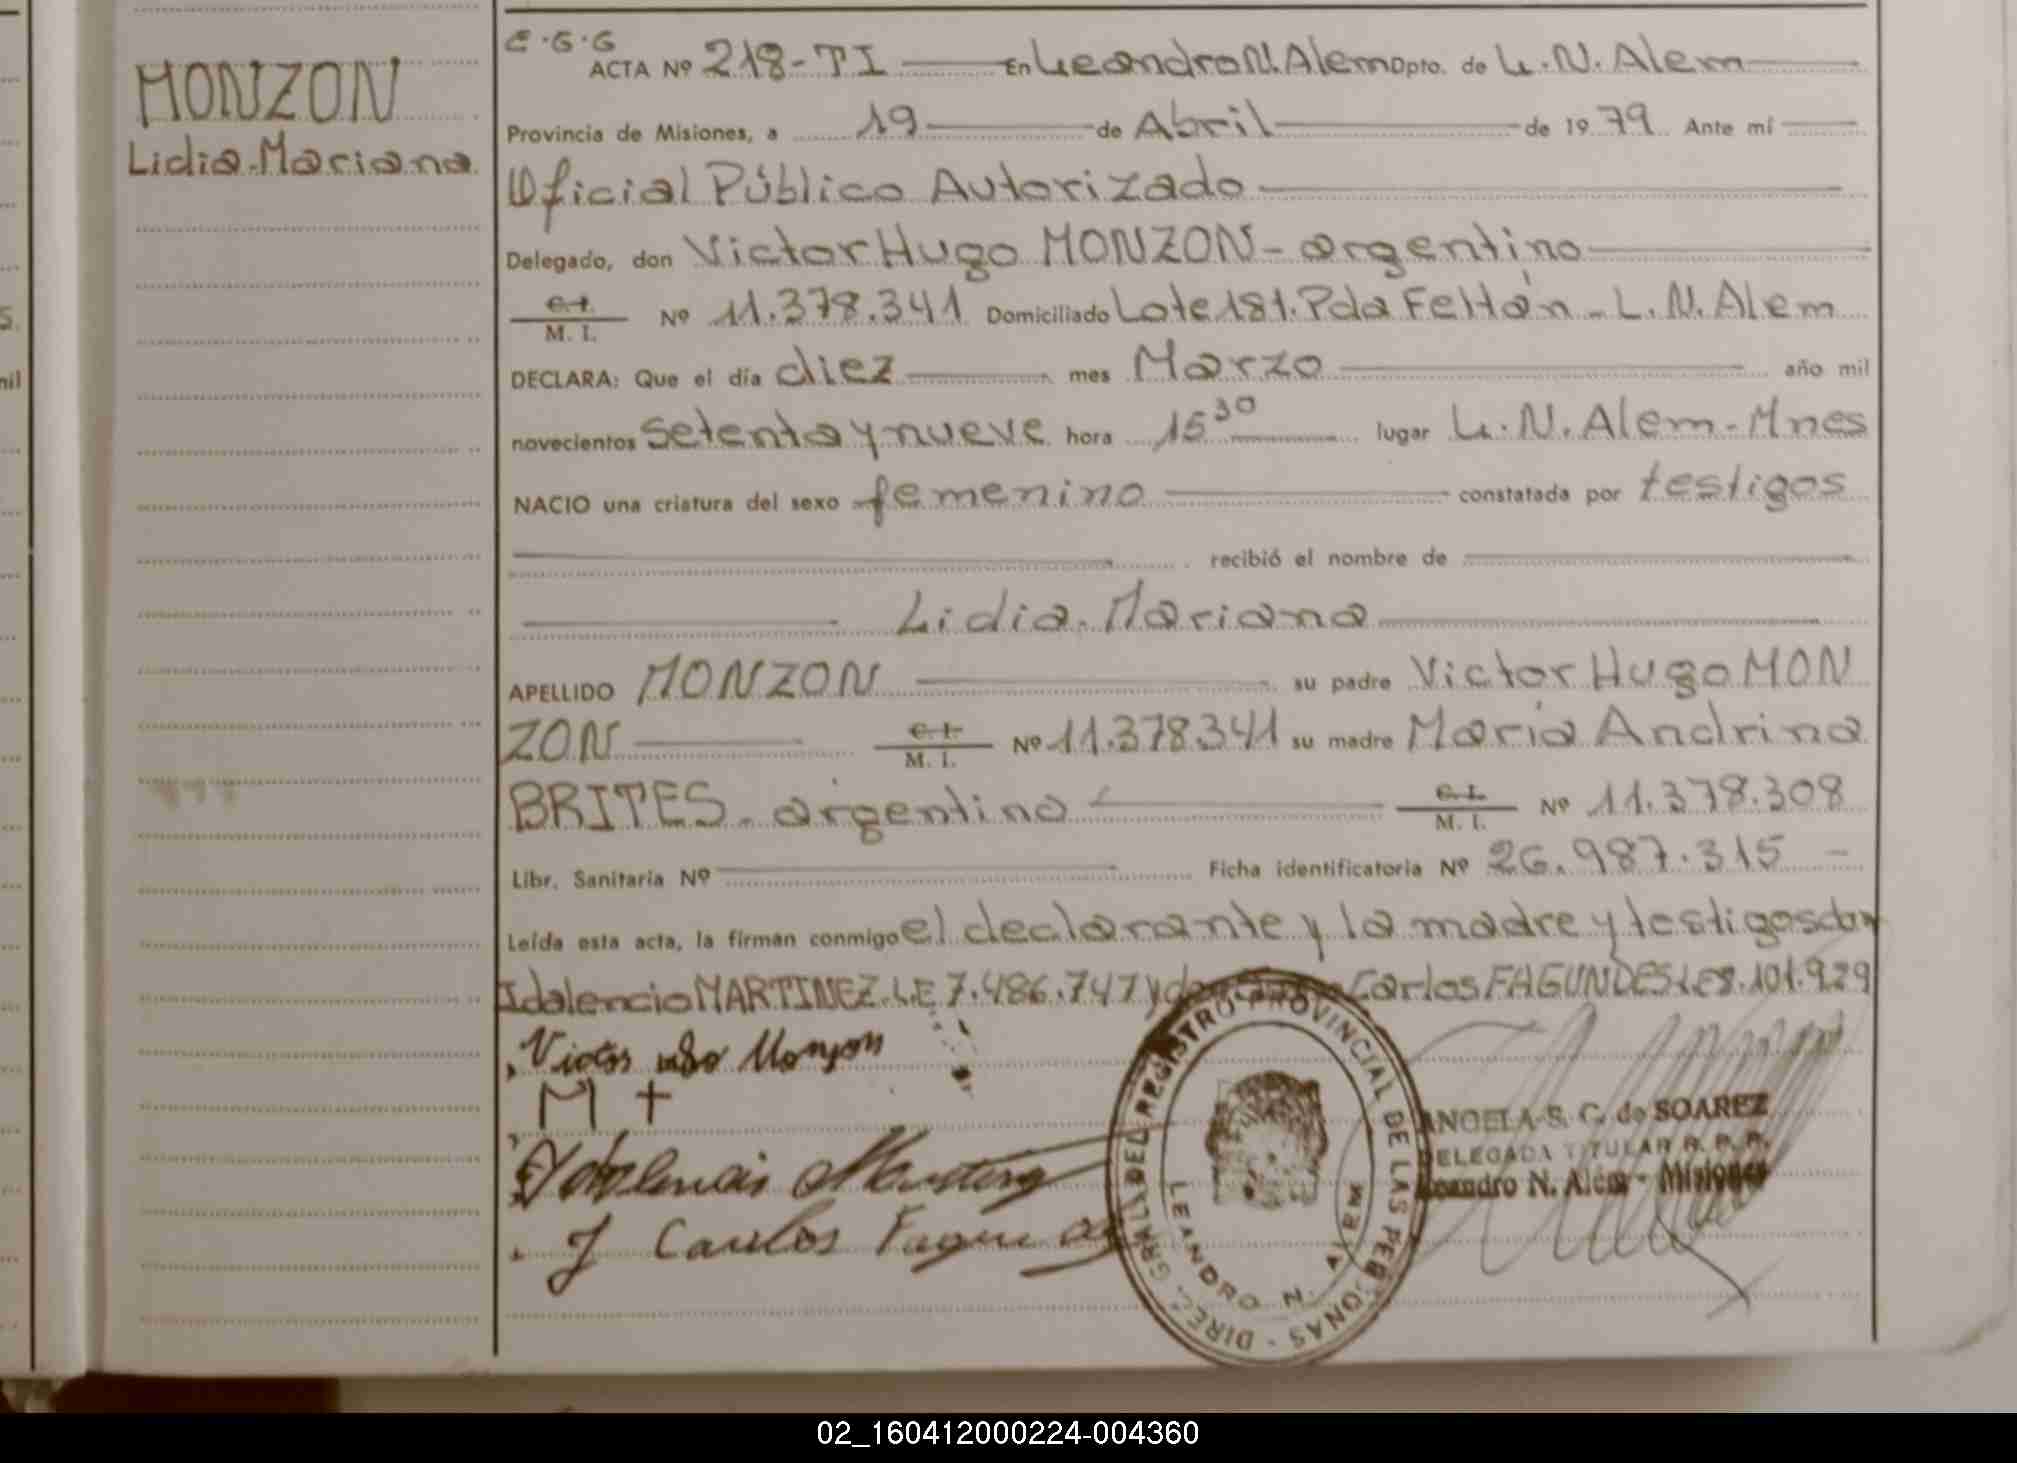 MONZON
Lidia-Mariana
E.G.G
ACTA Nº 218-TI En Leandro N. Alem Dpto. de L.N. Alem
Provincia de Misiones, a 19 de Abril de 1979 Ante mí
Oficial Público Autorizado
Delegado, don Victor Hugo MONZON - argentino
C.I.
M. I. Nº 11.378.341 Domiciliado Lote 181. Pda Feltán - L.N. Alem
DECLARA: Que el día diez mes Marzo año mil
novecientos setenta y nueve hora 15 30 lugar L.N. Alem - Mnes
NACIO una criatura del sexo femenino constatada por testigos
recibió el nombre de
Lidia-Mariana
APELLIDO MONZON su padre Victor Hugo MON
ZON C.I. M. I. Nº 11.378.341 su madre María Andrina
BRITES - argentina C.I. M. I. Nº 11.378.308
Libr. Sanitaria Nº Ficha identificatoria Nº 26.987.315 -
Leída esta acta, la firman conmigo el declarante y la madre y testigos don
Idalencio MARTINEZ. L.E 7.486.747 y Carlos FAGUNDES L.E 8.101.929
Victor ugo Monzon
M +
Idalencio Martinez
J Carlos Fagundes
DIREC. GRAL. DEL REGISTRO PROVINCIAL DE LAS PERSONAS -
LEANDRO N. ALEM
ANGELA S. C. de SOAREZ
DELEGADA TITULAR R. P. P.
Leandro N. Alem - Misiones
02_160412000224-004360